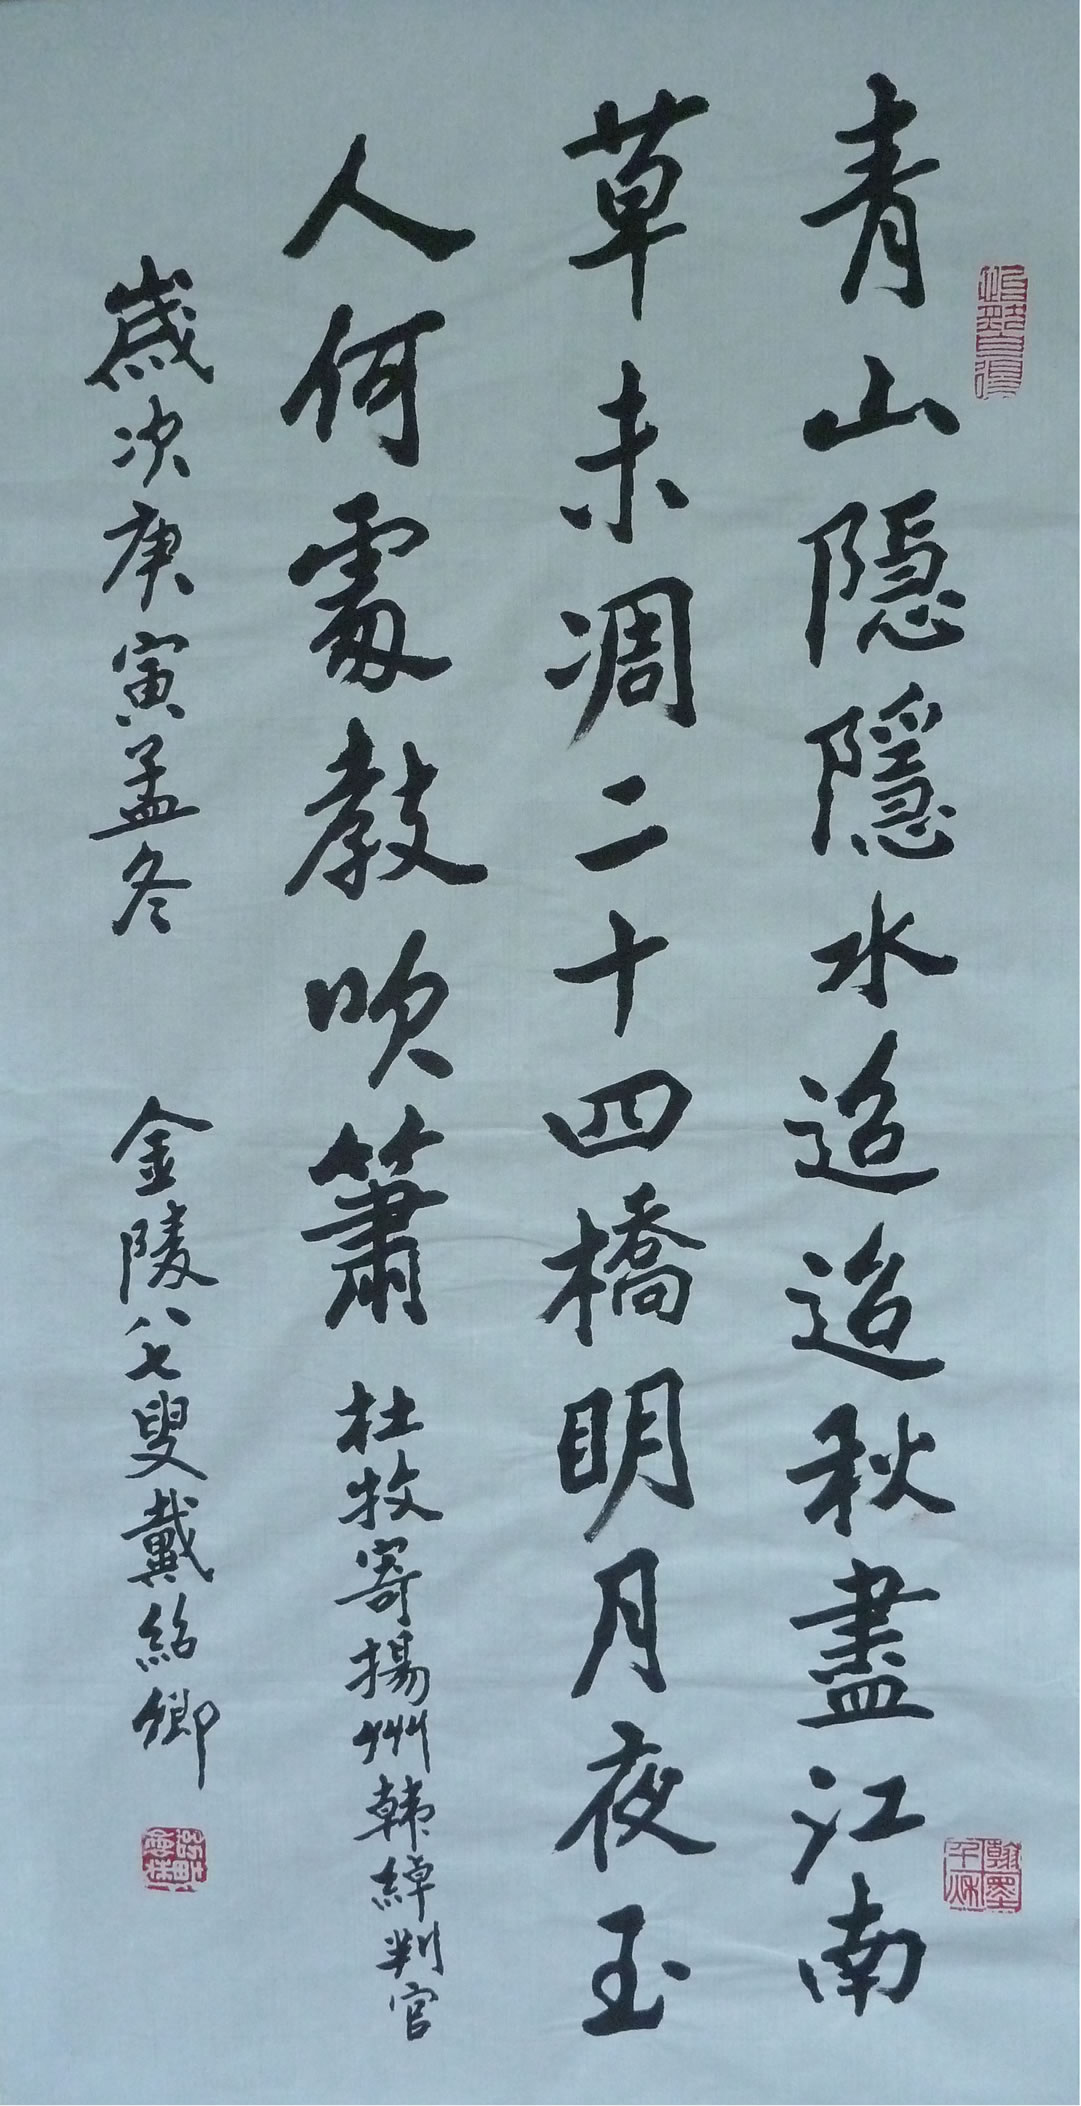 青山隱隱水迢迢秋盡江南
草未凋二十四橋明月夜玉
人何處教吹簫
杜牧寄揚州韓綽判官
歲次庚寅孟冬
金陵八七叟戴紹卿
翰墨千秋